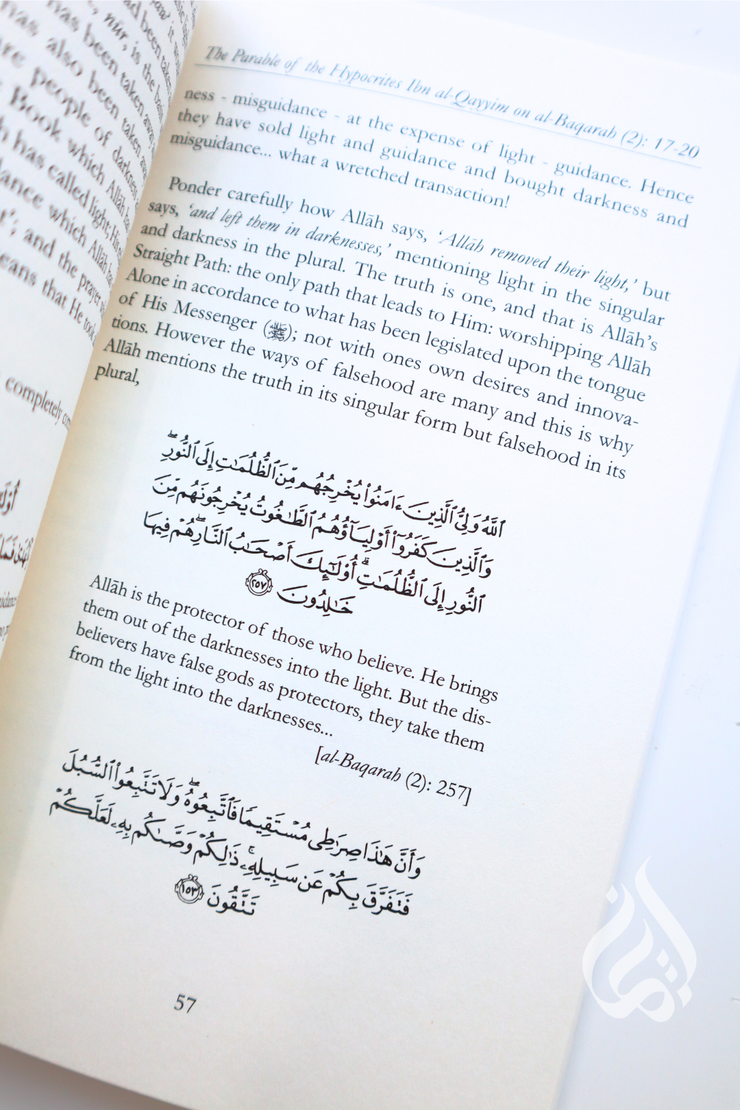 has been taken away
has also been taken
are people of darkness
Book which Allāh
has called light; His
guidance which Allāh
and the prayer
means that He took
completely
The Parable of the Hypocrites Ibn al-Qayyim on al-Baqarah (2): 17-20
ness - misguidance - at the expense of light - guidance. Hence
they have sold light and guidance and bought darkness and
misguidance... what a wretched transaction!
Ponder carefully how Allāh says, ‘Allāh removed their light,’ but
says, ‘and left them in darknesses,’ mentioning light in the singular
and darkness in the plural. The truth is one, and that is Allāh’s
Straight Path: the only path that leads to Him: worshipping Allāh
Alone in accordance to what has been legislated upon the tongue
of His Messenger (ﷺ); not with ones own desires and innova-
tions. However the ways of falsehood are many and this is why
Allāh mentions the truth in its singular form but falsehood in its
plural,
ٱللَّهُ وَلِىُّ ٱلَّذِينَ ءَامَنُوا۟ يُخْرِجُهُم مِّنَ ٱلظُّلُمَـٰتِ إِلَى ٱلنُّورِ ۖ
وَٱلَّذِينَ كَفَرُوٓا۟ أَوْلِيَآؤُهُمُ ٱلطَّـٰغُوتُ يُخْرِجُونَهُم مِّنَ
ٱلنُّورِ إِلَى ٱلظُّلُمَـٰتِ ۗ أُو۟لَـٰٓئِكَ أَصْحَـٰبُ ٱلنَّارِ ۖ هُمْ فِيهَا
خَـٰلِدُونَ ٢٥٧
Allāh is the protector of those who believe. He brings
them out of the darknesses into the light. But the dis-
believers have false gods as protectors, they take them
from the light into the darknesses...
[al-Baqarah (2): 257]
وَأَنَّ هَـٰذَا صِرَٰطِى مُسْتَقِيمًا فَٱتَّبِعُوهُ ۖ وَلَا تَتَّبِعُوا۟ ٱلسُّبُلَ
فَتَفَرَّقَ بِكُمْ عَن سَبِيلِهِۦ ۚ ذَٰلِكُمْ وَصَّىٰكُم بِهِۦ لَعَلَّكُمْ
تَتَّقُونَ ١٥٣
57